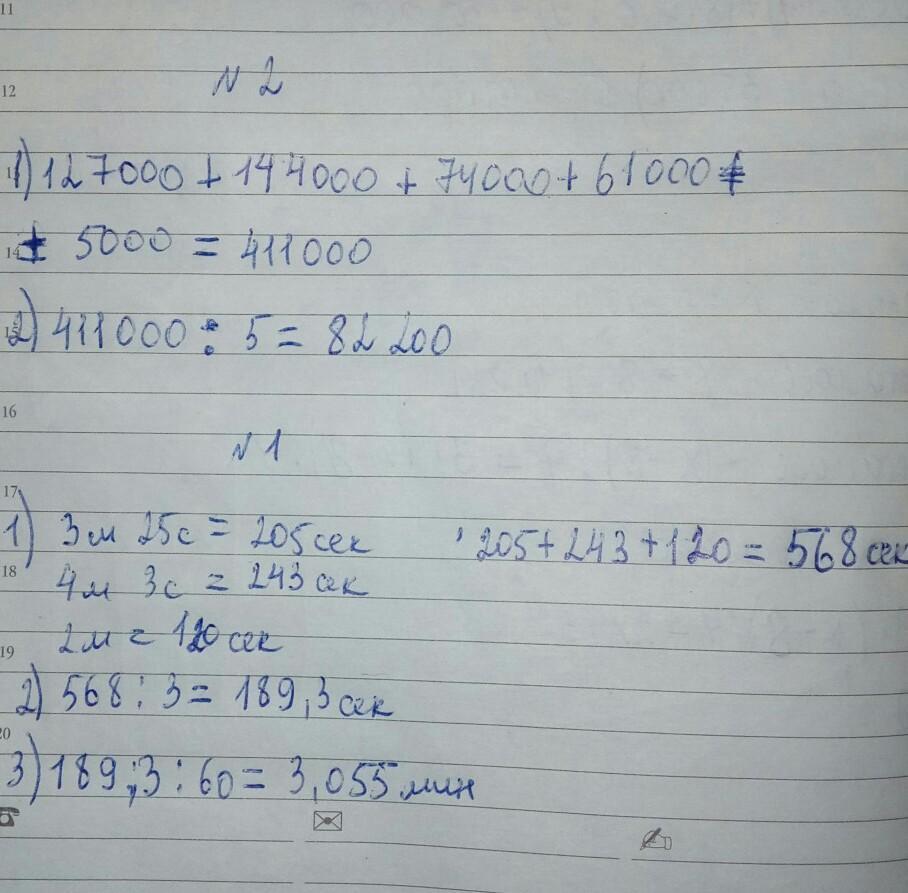 11
12
N 2
1) 127000 + 144000 + 74000 + 61000 +
14
+ 5000 = 411000
2) 411000 : 5 = 82 200
16
N 1
17
1) 3м 25с = 205 сек ' 205 + 243 + 120 = 568 сек
18
4м 3с = 243 сек
2м = 120 сек
19
2) 568 : 3 = 189,3 сек
20
3) 189,3 : 60 = 3,055 мин